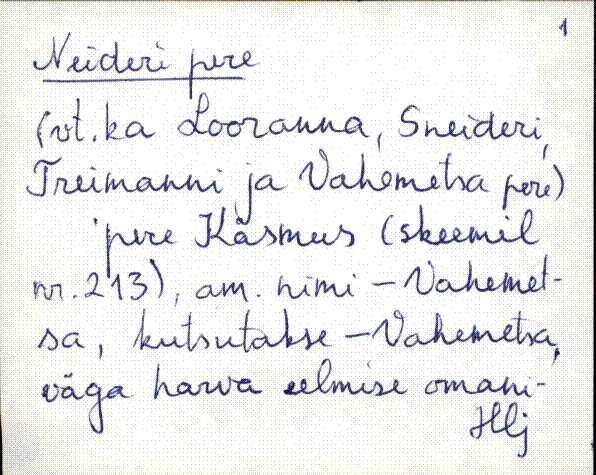 1
Neideri pere
(vt. ka Looranna, Sneideri,
Treimanni ja Vahemetsa pere)
pere Käsmus (skeemil
nr. 213), am. nimi – Vahemet-
sa, kutsutakse – Vahemetsa,
väga harva eelmise omani-
Hlj